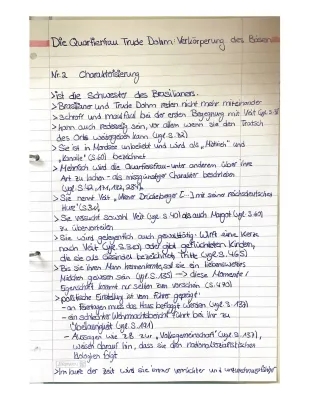 Die Quartierfrau Trude Dohm: Verkörperung des Bösen
Nr. 2 Charakterisierung
> ist die Schwester des Brasilianers.
> Brasilianer und Trude Dohm reden nicht mehr miteinander
> Schroff und maulfaul bei der ersten Begegnung mit Veit (vgl. S.
> kann auch redselig sein, vor allem wenn sie den Tratsch
des Orts weitergeben kann (vgl. S. 32)
> Sie ist in Mondsee unbeliebt und wird als „ und
„Kanaille" (S. 60) bezeichnet
> Mehrfach wird die Quartiersfrau - unter anderem über ihre
Art zu lachen - als missgünstiger Charakter beschrieben
(vgl. S. 42, 111, 182, 284).
> Sie nennt Veit „Wiener Drückeberger [...] mit seiner reichsdeutschen
Hure" (S. 310)
> Sie versucht sowohl Veit (vgl. S. 40) als auch Margot (vgl. S. 60)
zu übervorteilen
> Sie wird gelegentlich auch gewalttätig: Wirft eine Kerze
nach Veit (vgl. S. 310), oder gibt geflüchteten Kindern,
die sie als Gesindel bezeichnet, Tritte (vgl. S. 465)
> Bis sie ihren Mann kennenlernte, soll sie ein liebenswertes
Mädchen gewesen sein (vgl. S. 185) → diese Momente/
Eigenschaft kommt nur selten zum vorschein (S. 470)
> politische Einstellung ist vom Führer geprägt:
- an Feiertagen muss das Haus beflaggt werden (vgl. S. 137)
- ein schlechter Wehrmachtsbericht führt bei ihr zu
Übellaunigkeit (vgl. S. 121)
- Aussagen wie z.B. zur „Volksgemeinschaft" (vgl. S. 137),
weisen darauf hin, dass sie den nationalsozialistischen
Ideologien folgt
> Im Laufe der Zeit wird sie immer verrückter und